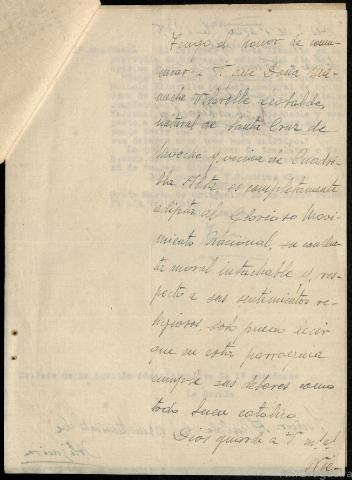 Tengo el honor de comu-
nicar a V. que Doña
natural de Santa Cruz de
y vecina de
Alta, es completamente
adicta al Glorioso Movi-
miento Nacional, su conduc-
ta moral intachable y, res-
pecto a sus sentimientos re-
ligiosos solo puedo decir
que en esta parroquia
cumple sus deberes como
todo buen católico.
Dios guarde a V. m. a.